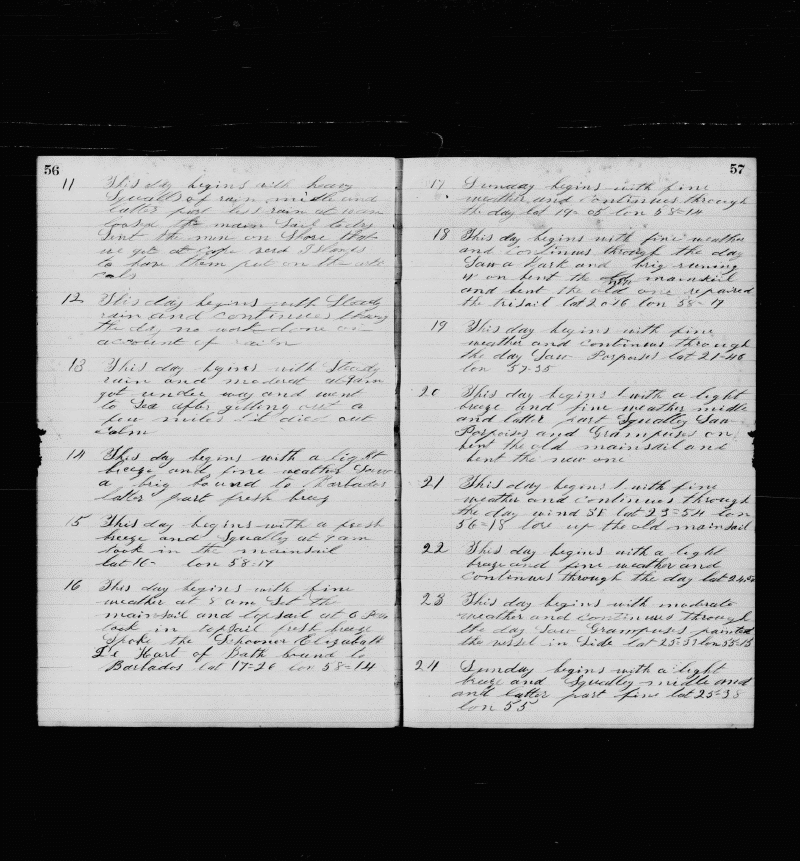 56
11 This day begins with heavy
Squalls of rain middle and
latter part less rain at
loosed the main Sail
Sent the men on Shore that
we got at Cape verd Islands
to have them put on the
12 This day begins with Steady
rain and continues through
the day no work done on
account of rain
13 This day begins with Steady
rain and moderat at 9 am
got under way and went
to Sea after getting out a
few miles it died out
calm
14 This day begins with a light
breeze and fine weather Saw
a brig bound to Barbados
latter part fresh breeze
15 This day begins with a fresh
breeze and Squally at 9 am
took in the mainsail
lat 16= lon 58=17
16 This day begins with fine
weather at 8 am Set the
mainsail and topsail at 6 Pm
took in topsail fresh breeze
Spoke the Schooner Elizabath
De Hart of Bath bound to
Barbados lat 17=26 lon 58=14
57
17 Sunday begins with fine
weather and continues through
the day lat 19=05 lon 58=14
18 This day begins with fine weather
and continues through the day
Saw a Bark and brig runing
un bent the mainsail
and bent the old one repaired
the trisail lat 20=16 lon 58=19
19 This day begins with fine
weather and continues through
the day Saw Porpuses lat 21=46
lon 57=35
20 This day begins with a light
breeze and fine weather middle
and latter part Squalley Saw
Porpoises and Grampuses on
bent the old mainsail and
bent the new one
21 This day begins with fine
weather and continues through
the day wind SE lat 23=54 lon
56=18 tore up the old mainsail
22 This day begins with a light
breeze and fine weather and
continues through the day lat 24=
23 This day begins with moderate
weather and continues through
the day Saw Grampuses painted
the vessel in Side lat 25=33 lon 55=15
24 Sunday begins with a light
breeze and Squalley middle and
and latter part fine lat 25=38
lon 55